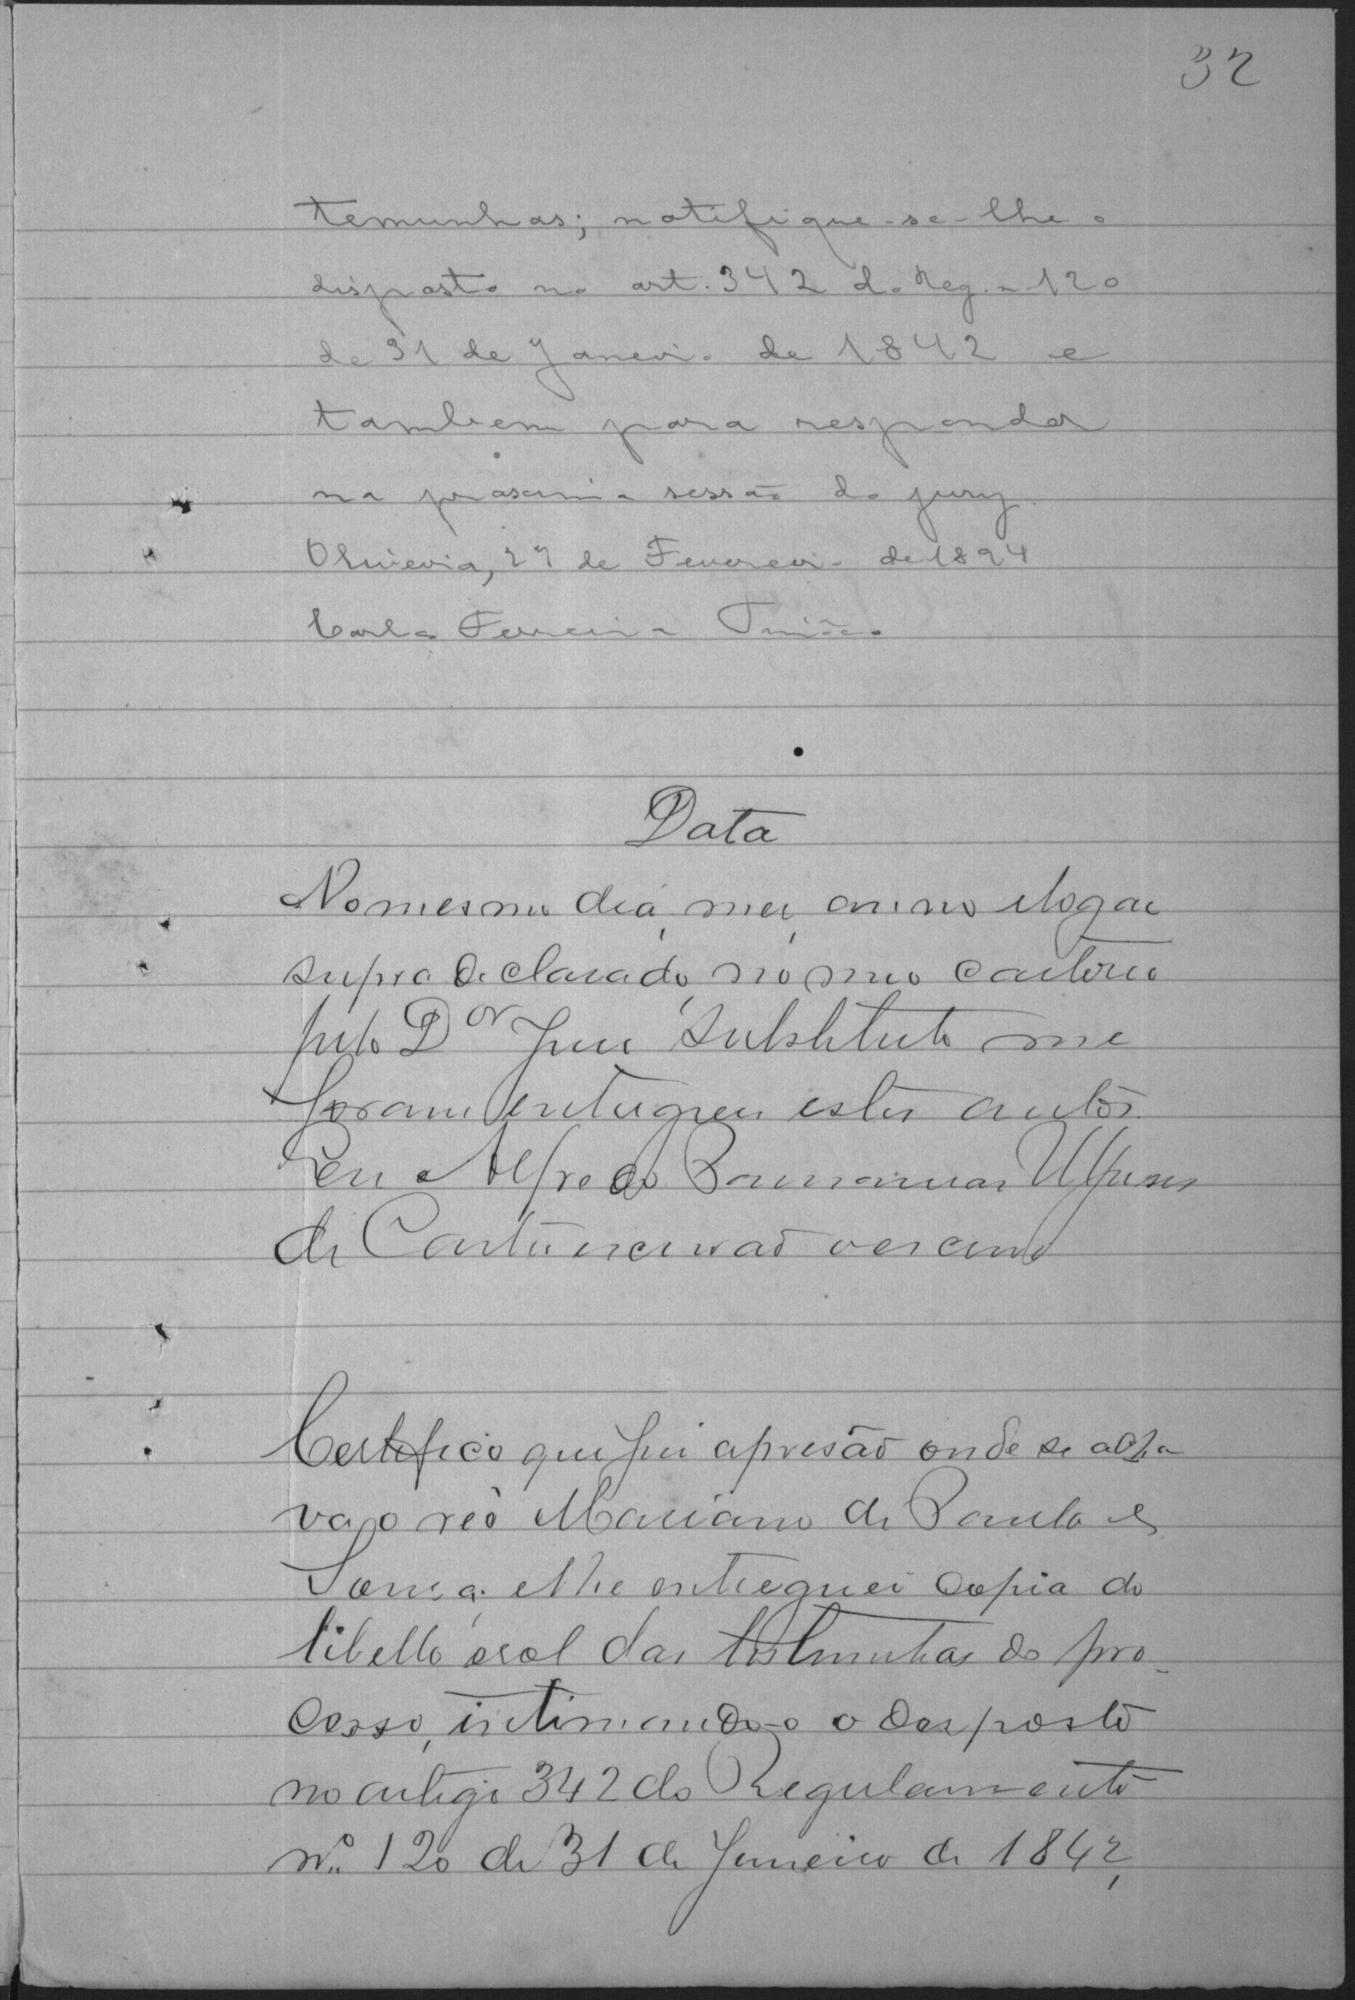 32
temunhas; notifique-se-lhe o
disposto no art. 342 do Reg. n 120
de 31 de Janeiro de 1842 e
tambem para responder
na proxima sessão do jury
27 de Fevereiro de 1894
Carlos Ferreira
Data
No mesmo dia, mez, anno e logar
supra declarado, no meo cartorio
pelo Dor Juiz Substituto me
foram entregues estes autos.
Eu Alfredo
de Castro escrivão o escrevi
Certifico que fui a prisão onde se acha
va o réo Mariano de Paula e
Souza, e lhe entreguei copia do
libello e rol das testemunhas do pro-
cesso, intimando-o o desposto
no artigo 342 do Regulamento
nº. 120 de 31 de Janeiro de 1842,